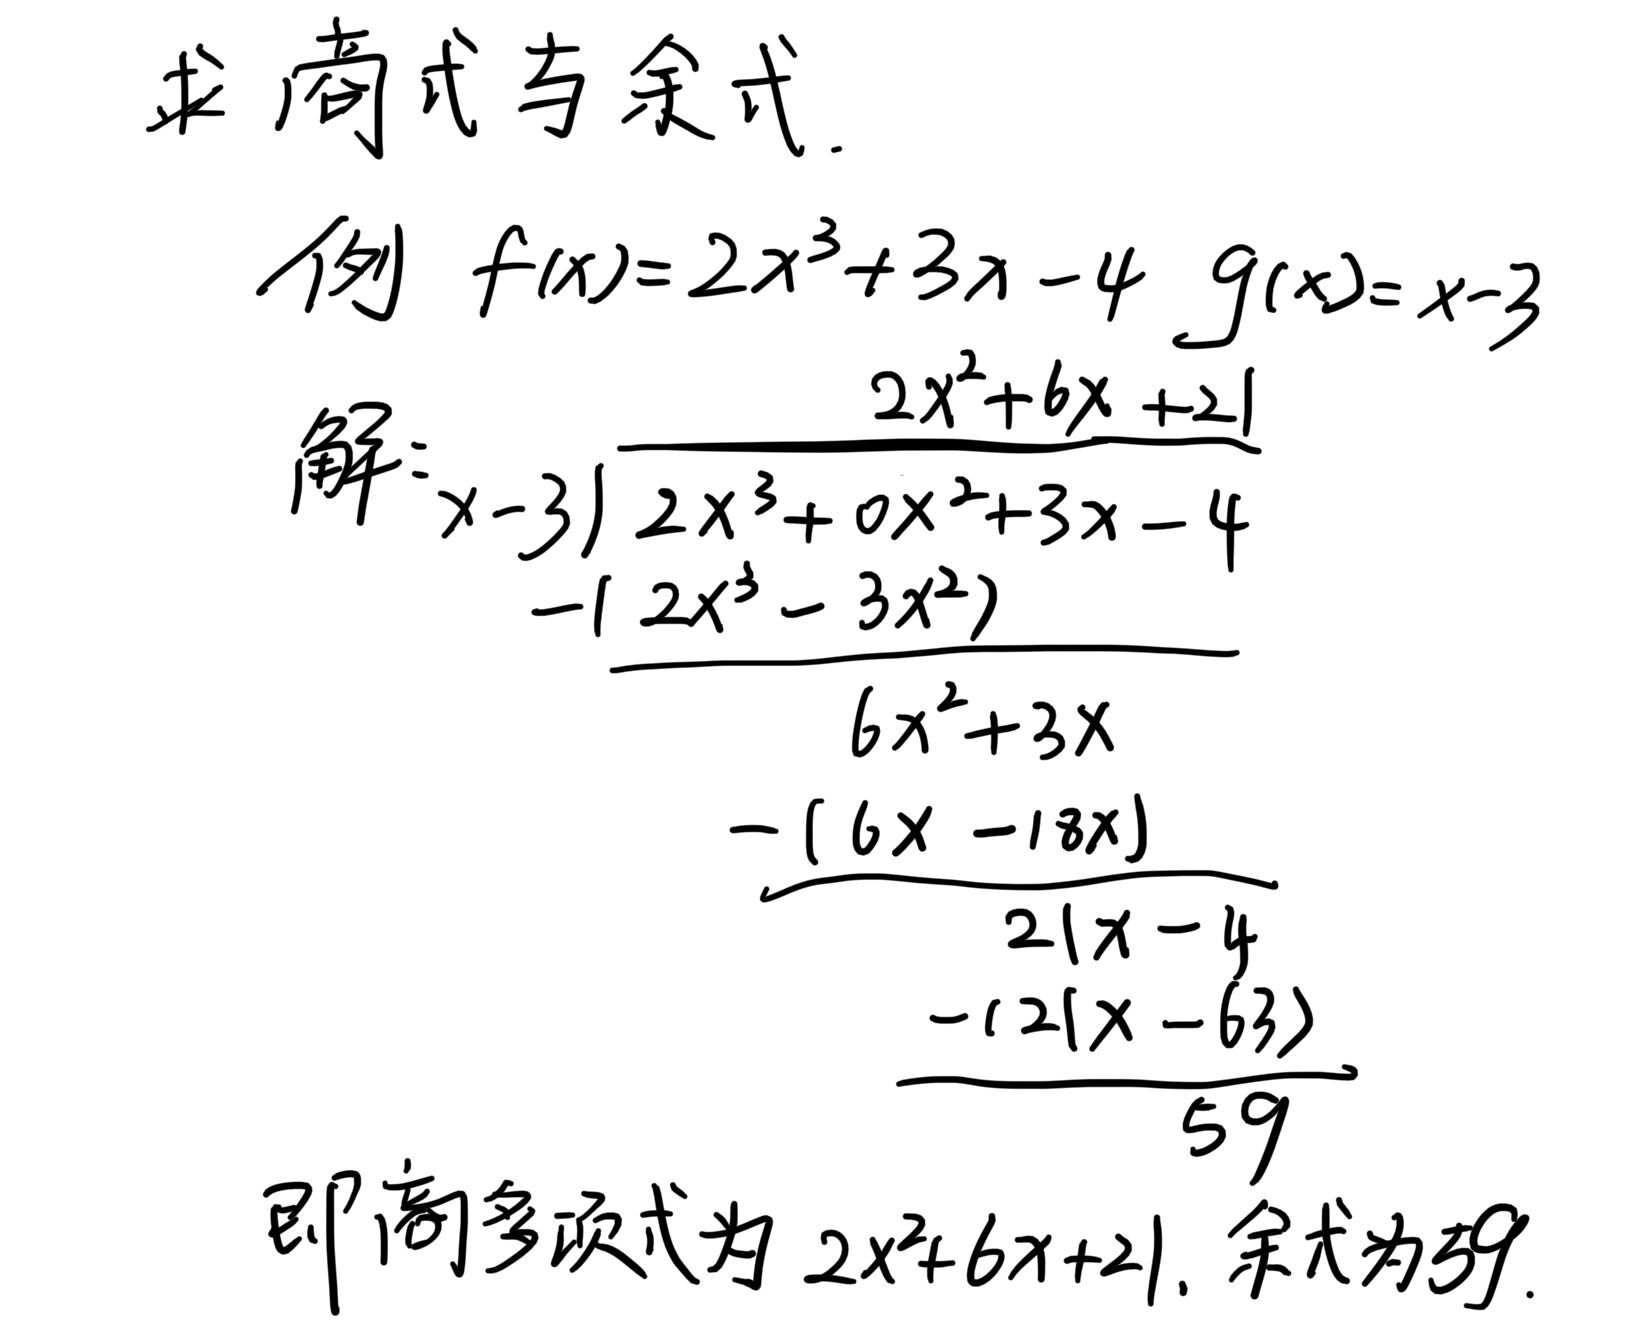 求商式与余式.
例 f(x)=2x³+3x-4 g(x)=x-3
2x²+6x+21
解: x-3)2x³+0x²+3x-4
-(2x³-3x²)
6x²+3x
-(6x-18x)
21x-4
-(21x-63)
59
即商多项式为2x²+6x+21,余式为59.